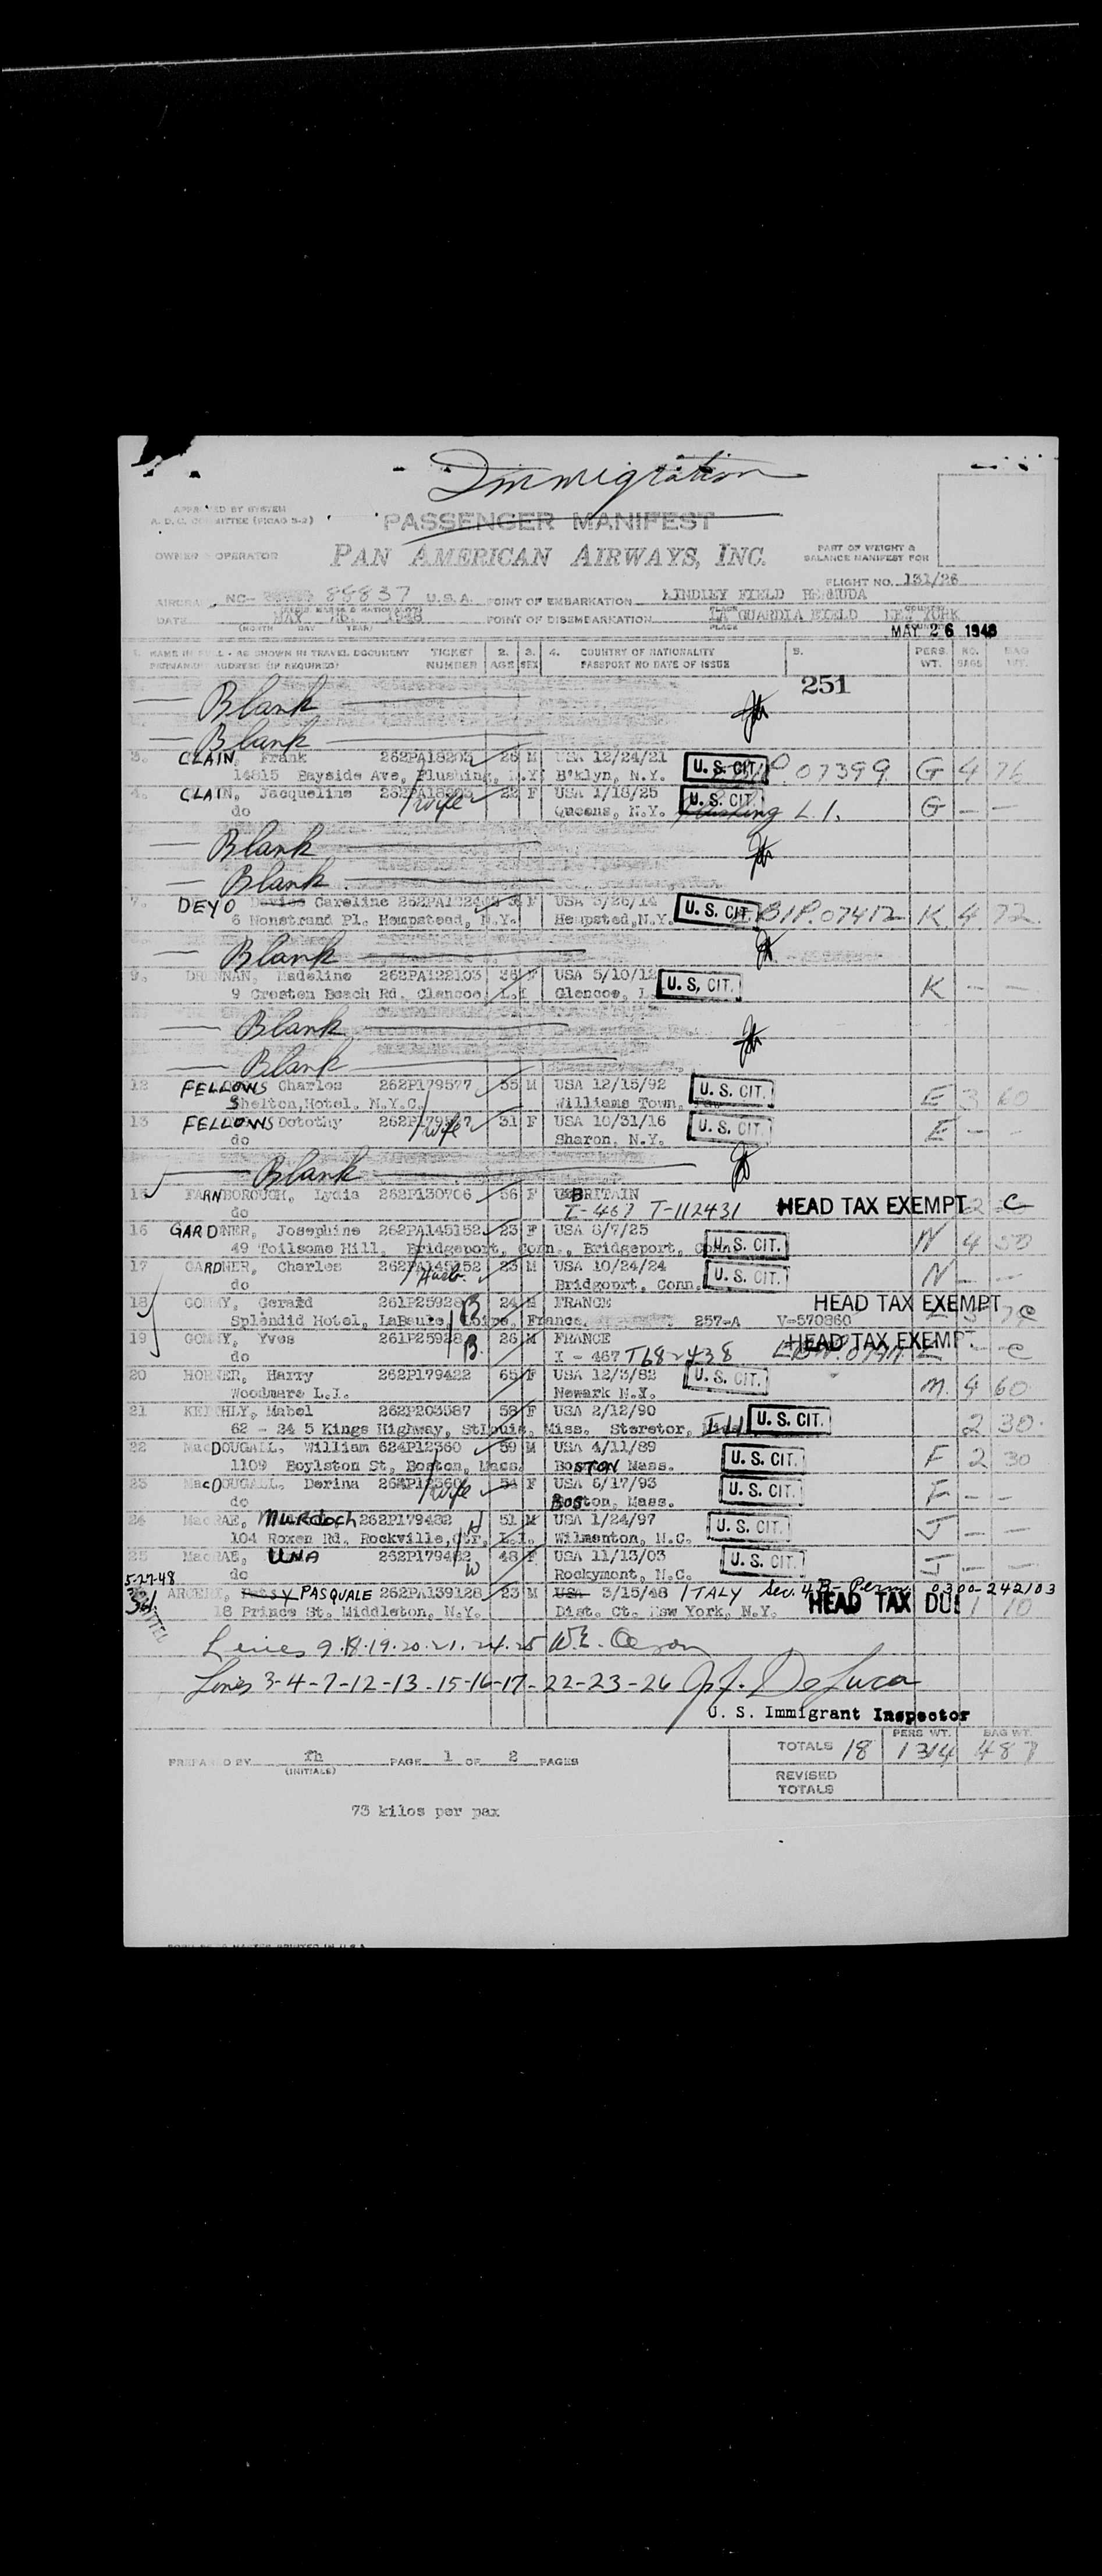 Immigration
APPROVED BY SYSTEM
A. D. C. COMMITTEE (PICAO 5-2)
PASSENGER MANIFEST
OWNER OPERATOR
PAN AMERICAN AIRWAYS, INC.
PART OF WEIGHT &
BALANCE MANIFEST FOR
FLIGHT NO. 131/26
NC- 88837 U.S.A. POINT OF EMBARKATION KINDLEY FIELD BERMUDA
DATE MAY 26, 1948 POINT OF DISEMBARKATION LA GUARDIA FIELD NEW YORK
(MONTH DAY YEAR) PLACE
MAY 26 1948
1. NAME IN FULL - AS SHOWN IN TRAVEL DOCUMENT TICKET 2. 3. 4. COUNTRY OF NATIONALITY 5. PERS. NO. BAG
PERMANENT ADDRESS (IF REQUIRED) NUMBER AGE SEX PASSPORT NO DATE OF ISSUE WT. BAGS WT.
251
Blank
Blank
3. CLAIN, Frank 262PA18203 26 M USA 12/24/21 U. S. CIT. P. 07399 G 4 76
14815 Bayside Ave, Flushing, N.Y. B'klyn, N.Y.
4. CLAIN, Jacqueline 262PA18203 /wife 22 F USA 1/18/25 U. S. CIT. G - -
do Queens, N.Y. L.I.
Blank
Blank
7. DEYO Caroline F USA 3/26/14 U. S. CIT. P. 07412 K 4 72
6 Nonstrand Pl. Hempstead, N.Y. Hempsted, N.Y.
Blank
9. DRENNAN, Madeline 262PA122103 36 F USA 5/10/12 U. S. CIT. K - -
9 Creston Beach Rd. Glencoe, L.I Glencoe,
Blank
Blank
12 FELLOWS Charles 262P179577 55 M USA 12/15/92 U. S. CIT. E 3 60
Shelton, Hotel. N.Y.C. Williams Town,
13 FELLOWS Dotothy /wife 31 F USA 10/31/16 U. S. CIT. E - -
do Sharon, N.Y.
Blank
15 FARNBOROUGH, Lydia 262P130706 56 F BRITAIN
do I-467 T-112431 HEAD TAX EXEMPT C
16 GARDNER, Josephine 262PA145152 23 F USA 6/7/25 N 4 50
49 Toilsome Hill, Bridgeport, Conn., Bridgeport, U. S. CIT.
17 GARDNER, Charles 262PA145152 /Husb. 23 M USA 10/24/24 N - -
do Bridgoprt, Conn. U. S. CIT.
18 Gerald 261P25928 B 24 M FRANCE HEAD TAX EXEMPT C
Splendid Hotel, LaBaule, Loire, France. 257-A V-570860
19 Yves 261P25928 B. 26 M FRANCE HEAD TAX EXEMPT
do I - 467 T682438 - C
20 HORNER, Harry 262P179422 65 F USA 12/3/82 U. S. CIT. M. 4 60
Woodmere L.I. Newark N.Y.
21 Mabel 262P203587 58 F USA 2/12/90 U. S. CIT. 2 30
62 - 24 5 Kings Highway, StLouis, Miss. Steretor, Ill
22 MacDOUGALL, William 624P12360 59 M USA 4/11/89 U. S. CIT. F 2 30
1109 Boylston St, Boston, Mass. BOSTON Mass.
23 MacDOUGALL, Derina /wife 54 F USA 6/17/93 U. S. CIT. F - -
do Boston, Mass.
24 MacRAE, Murdoch 262P179482 H 51 M USA 1/24/97 U. S. CIT. - -
104 Roxen Rd. Rockville, Ctr, L.I. Wilmenton, N.C.
25 MacRAE, UNA 262P179482 W 48 F USA 11/13/03 U. S. CIT. - -
do Rockymont, N.C.
5-27-48
PASQUALE 262PA139128 23 M USA 3/15/48 ITALY Sec. 4B- Perm 0300-242103
18 Prince St. Middleton, N.Y. Dist. Ct. New York, N.Y. HEAD TAX DUE 1 10
Lines 9.18.19.20.21.24.25 W.E.
Lines 3-4-7-12-13-15-16-17-22-23-26 DeLuca
U. S. Immigrant Inspector
PERS WT. BAG WT.
TOTALS 18 1314 487
PREPARED BY fh PAGE 1 OF 2 PAGES
(INITIALS)
REVISED
TOTALS
73 kilos per pax